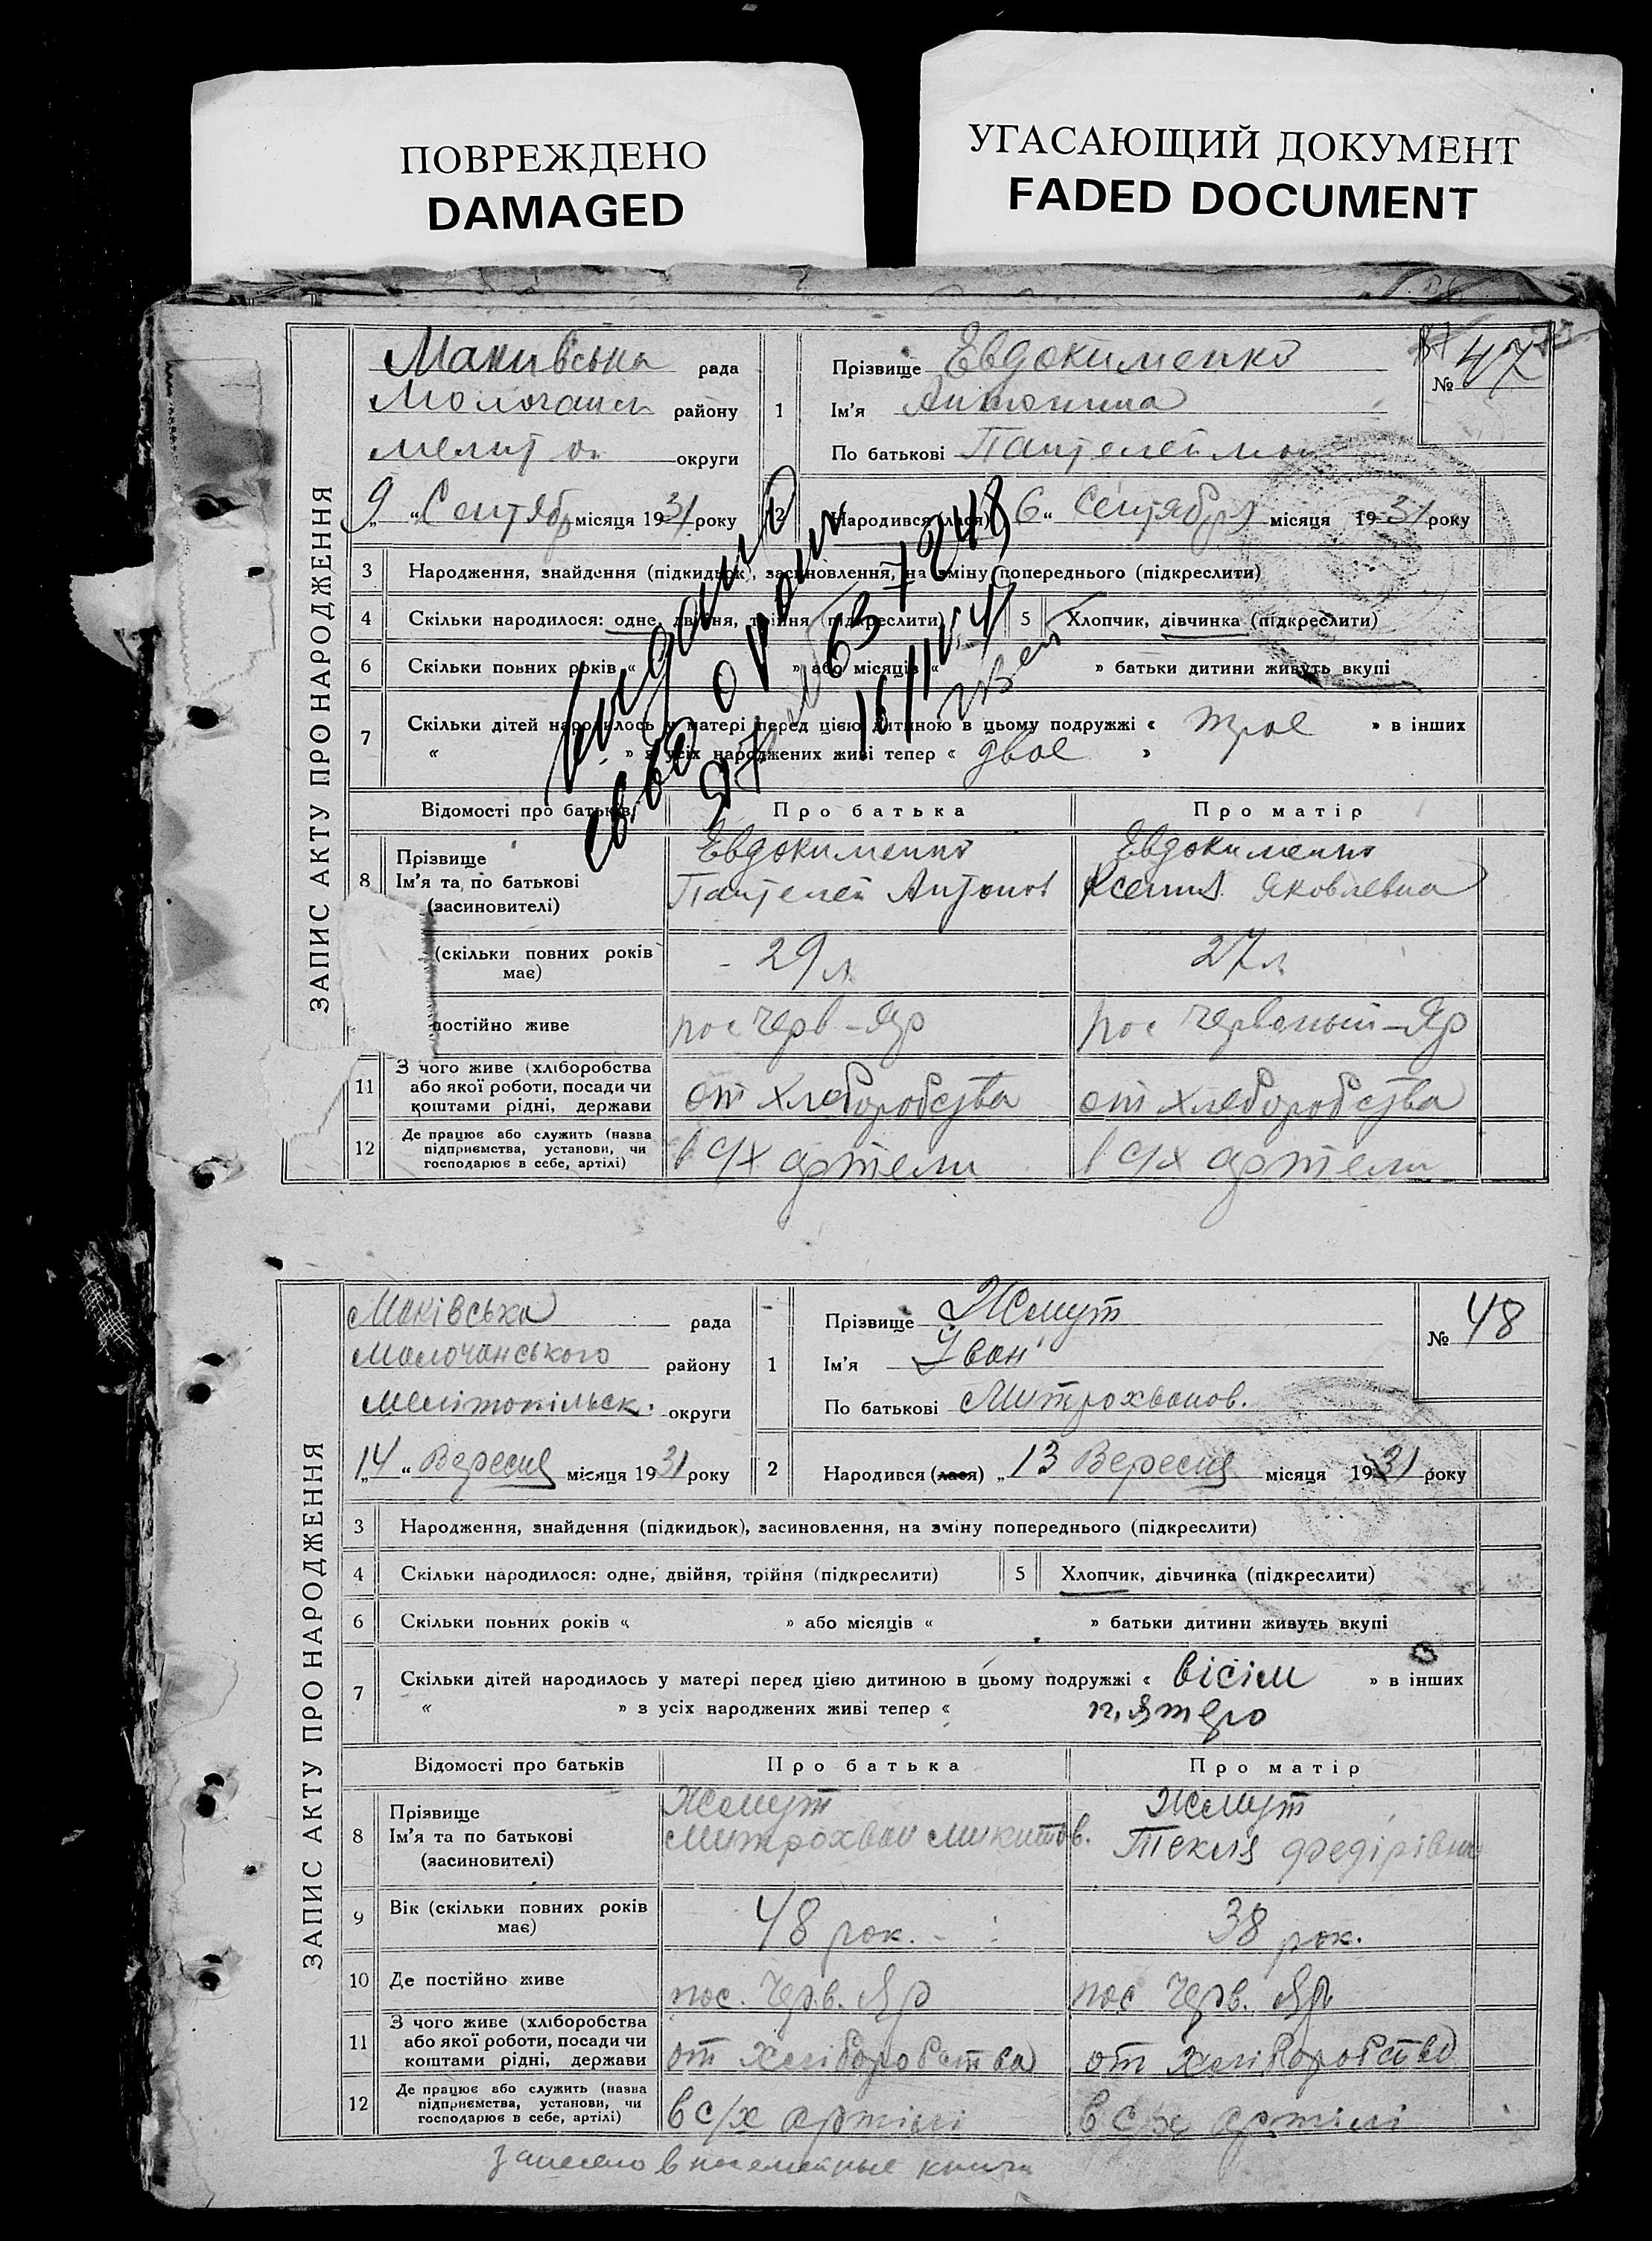 ПОВРЕЖДЕНО
DAMAGED
УГАСАЮЩИЙ ДОКУМЕНТ
FADED DOCUMENT
ЗАПИС АКТУ ПРО НАРОДЖЕННЯ
рада
району
мелит ок округи
„9“ Сентябр місяця 1931 року
№ 47
1 Прізвище Евдокименко
Ім'я Антонина
По батькові Пантелеймон
2 Народився (лася) „6“ Сентября місяця 1931 року
3 Народження, знайдення (підкидьок), засиновлення, на зміну попереднього (підкреслити)
4 Скільки народилося: одне, двійня, трійня (підкреслити) 5 Хлопчик, дівчинка (підкреслити)
6 Скільки повних років « » або місяців « » батьки дитини живуть вкупі
7 Скільки дітей народилось у матері перед цією дитиною в цьому подружжі « трое » в інших
« » з усіх народжених живі тепер « двое »
Відомості про батьків Про батька Про матір
8 Прізвище
Ім'я та по батькові
(засиновителі)
Евдокименко
Пантелей Антонов
Евдокименко
Ксения Яковлевна
(скільки повних років має) 29 л 27 л
постійно живе пос Черв-Яр пос Червоный-Яр
11 З чого живе (хліборобства
або якої роботи, посади чи
коштами рідні, держави
от хлеборобства от хлеборобства
12 Де працює або служить (назва
підприємства, установи, чи
господарює в себе, артілі)
в с/х артели в с/х артели
ЗАПИС АКТУ ПРО НАРОДЖЕННЯ
Маківська рада
Молочанського району
Мелітопільск. округи
„14“ Вересня місяця 1931 року
№ 48
1 Прізвище Жмут
Ім'я Іван
По батькові Митрохванов.
2 Народився (лася) „13 Вересня місяця 1931 року
3 Народження, знайдення (підкидьок), засиновлення, на зміну попереднього (підкреслити)
4 Скільки народилося: одне, двійня, трійня (підкреслити) 5 Хлопчик, дівчинка (підкреслити)
6 Скільки повних років « » або місяців « » батьки дитини живуть вкупі
7 Скільки дітей народилось у матері перед цією дитиною в цьому подружжі « вісім » в інших
« » з усіх народжених живі тепер « п,ятеро
Відомості про батьків Про батька Про матір
8 Прізвище
Ім'я та по батькові
(засиновителі)
Жмут
Митрохван Микитов.
Жмут
Текля Федірівна
9 Вік (скільки повних років має) 48 рок. 38 рок.
10 Де постійно живе пос. Черв. Яр пос Черв. Яр
11 З чого живе (хліборобства
або якої роботи, посади чи
коштами рідні, держави
от хліборобства от хліборобства
12 Де працює або служить (назва
підприємства, установи, чи
господарює в себе, артілі)
в с/х артілі в с/х артілі